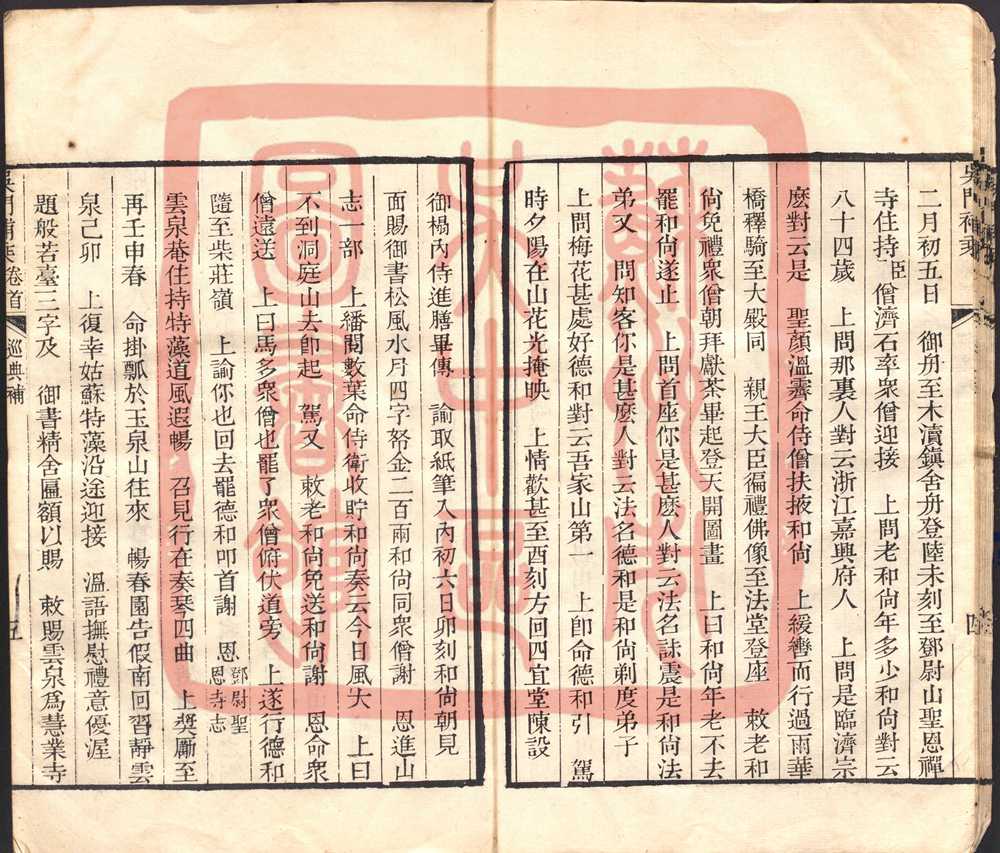 二月初五日　御舟至木瀆鎮舍舟登陸未刻至鄧尉山聖恩禪
寺住持臣僧濟石率衆僧迎接　上問老和尙年多少和尙對云
八十四歲　上問那裏人對云浙江嘉興府人　上問是臨濟宗
麽對云是　聖顏溫霽命侍僧扶掖和尙　上緩轡而行過雨華
橋釋騎至大殿同　親王大臣徧禮佛像至法堂登座　敕老和
尙免禮衆僧朝拜獻茶畢起登天開圖畫　上曰和尙年老不去
罷和尙遂止　上問首座你是甚麽人對云法名誌震是和尙法
弟又　問知客你是甚麽人對云法名德和是和尙剃度弟子
上問梅花甚處好德和對云吾家山第一　上卽命德和引　駕
時夕陽在山花光掩映　上情歡甚至酉刻方回四宜堂陳設
四
御榻內侍進膳畢傳　諭取紙筆入內初六日卯刻和尙朝見
面賜御書松風水月四字努金二百兩和尙同衆僧謝　恩進山
志一部　上繙閱數葉命侍衛收貯和尙奏云今日風大　上曰
不到洞庭山去卽起　駕又　敕老和尙免送和尙謝　恩命衆
僧遠送　上曰馬多衆僧也罷了衆僧俯伏道旁　上遂行德和
隨至柴莊嶺　上諭你也回去罷德和叩首謝　恩鄧尉聖恩寺志
雲泉菴住持特藻道風遐暢　召見行在奏琴四曲　上奬勵至
再壬申春　命掛瓢於玉泉山往來　暢春園告假南回習靜雲
泉己卯　上復幸姑蘇特藻沿途迎接　溫語撫慰禮意優渥
題般若臺三字及　御書精舍匾額以賜　敕賜雲泉爲慧業寺
卷首
巡典補
五